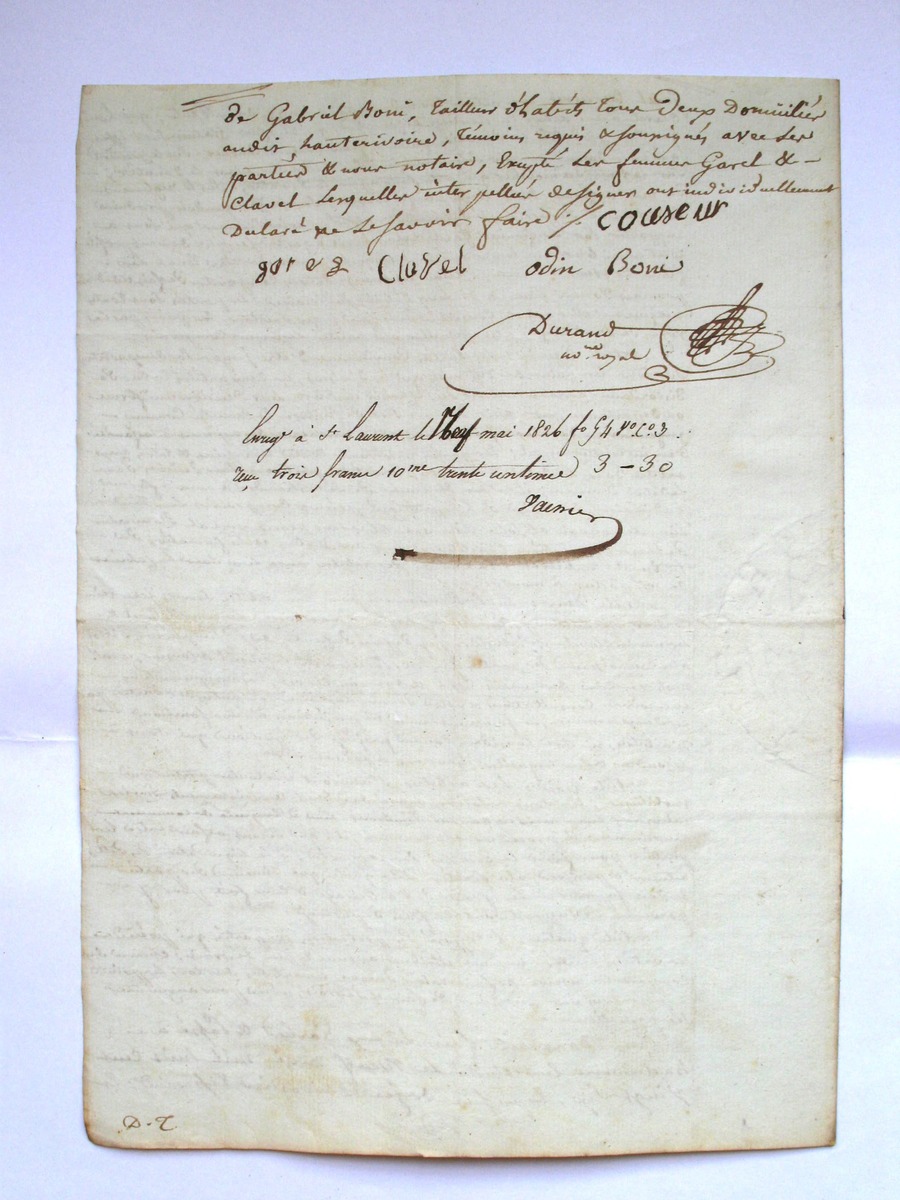 de Gabriel Boni, tailleur d'habits tous deux Domiciliés
audit hauterivoire, témoins requis & soussignés avec les
parties & nous notaire, Excepté les femmes Garel & -
Clavel lesquelles interpellées de signer ont individuellement
Déclaré ne le savoir faire ./. couseur
garel Clavel odin Boni
Durand
no.re royal
Enregé à St Laurent le Neuf mai 1826 fo 54 vo Co. 3
reçu trois francs 10me trente centimes 3 - 30
D.T.